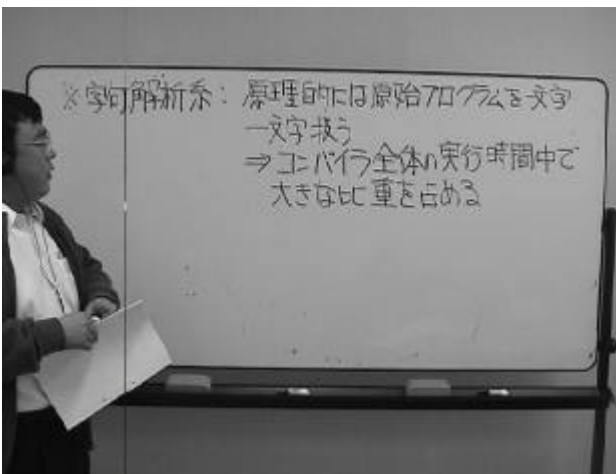 ※字句解析系: 原理的には原始プログラムを一文字
一文字扱う
⇒コンパイラ全体の実行時間中で
大きな比重を占める